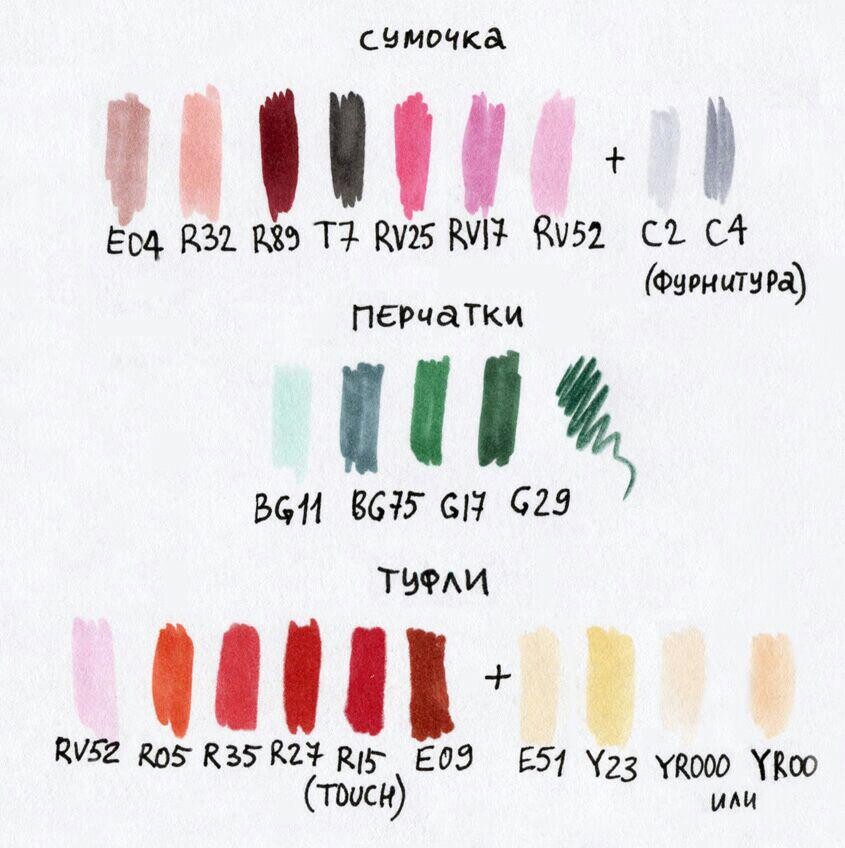 сумочка
E04 R32 R89 T7 RV25 RV17 RV52 + C2 C4
(фурнитура)
перчатки
BG11 BG75 G17 G29
туфли
RV52 R05 R35 R27 R15 E09 + E51 Y23 YR000 YR00
(TOUCH) или